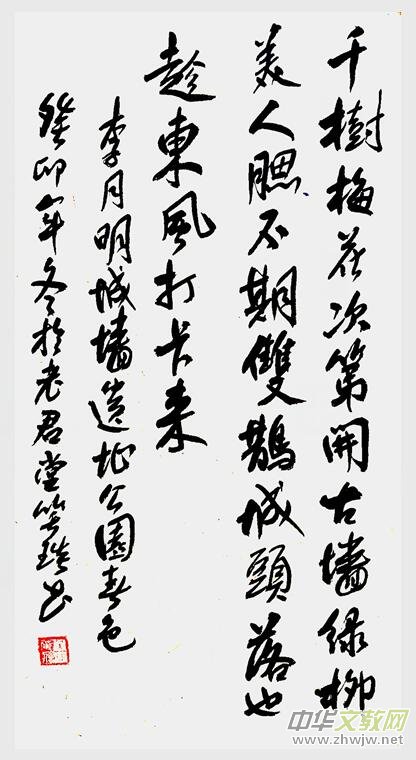 千樹梅花次第開古墻緑柳
美人腮不期雙鵲城頭落也
趁東風打卡来
李月明城墻遺址公園春色
癸卯年冬於老君堂书
中华文教网
www.zhwjw.net